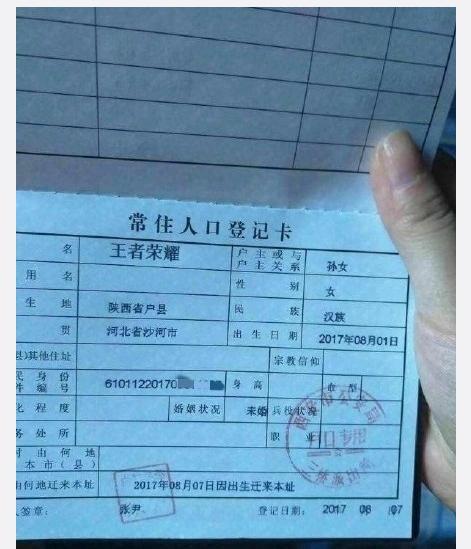 常住人口登记卡
名 王者荣耀 户主或与户主关系 孙女
用名 性别 女
生地 陕西省户县 民族 汉族
贯 河北省沙河市 出生日期 2017年08月01日
县)其他住址 宗教信仰
民身份件编号 61011220170 身高 血型
化程度 婚姻状况 未婚 兵役状况
务处所 职业
时由何地本市(县)
由何地迁来本址 2017年08月07日因出生迁来本址
人签章: 张尹 登记日期: 2017 08 07